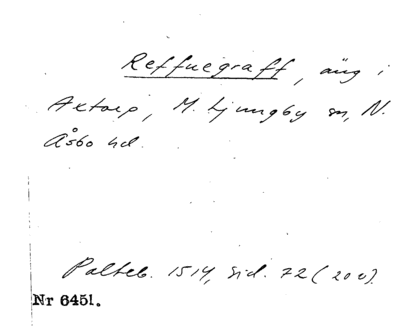 Reffuegraff, äng i
Axtorp, M. Ljungby sn, N.
Åsbo hd.
Palteb. 1514, sid. 72 (200).
Nr 6451.